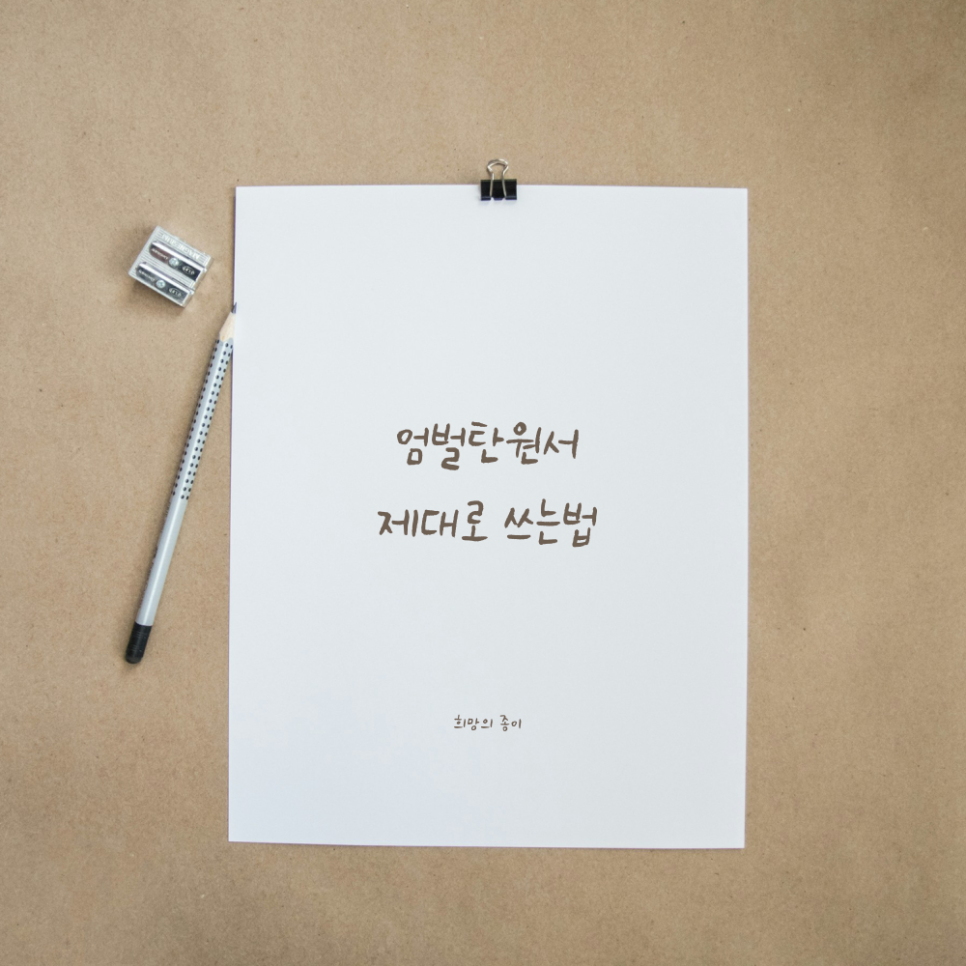 엄벌탄원서
제대로 쓰는법
희망의 종이